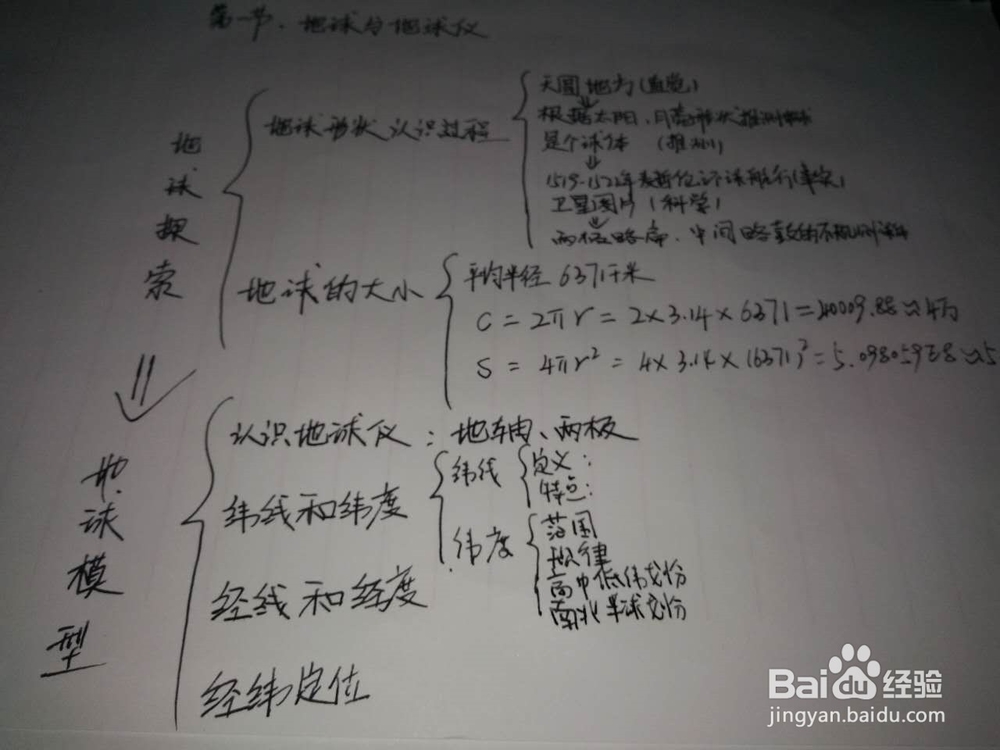 第一节、地球与地球仪
地球探索
地球形状认识过程
天圆地方(直觉)
根据太阳、月亮形状推测地球
是个球体 (推测)
1519-1522年麦哲伦环球航行(事实)
卫星图片 (科学)
两极略扁、中间略鼓的不规则球体
地球的大小
平均半径 6371千米
C = 2πr = 2×3.14×6371 = 40009.88≈4万
S = 4πr² = 4×3.14×(6371)² = 5.098059E8≈5
地球模型
认识地球仪：地轴、两极
纬线和纬度
纬线
定义：
特点：
纬度
范围
规律
高中低纬划份
南北半球划份
经线和经度
经纬定位
Baidu经验
jingyan.baidu.com